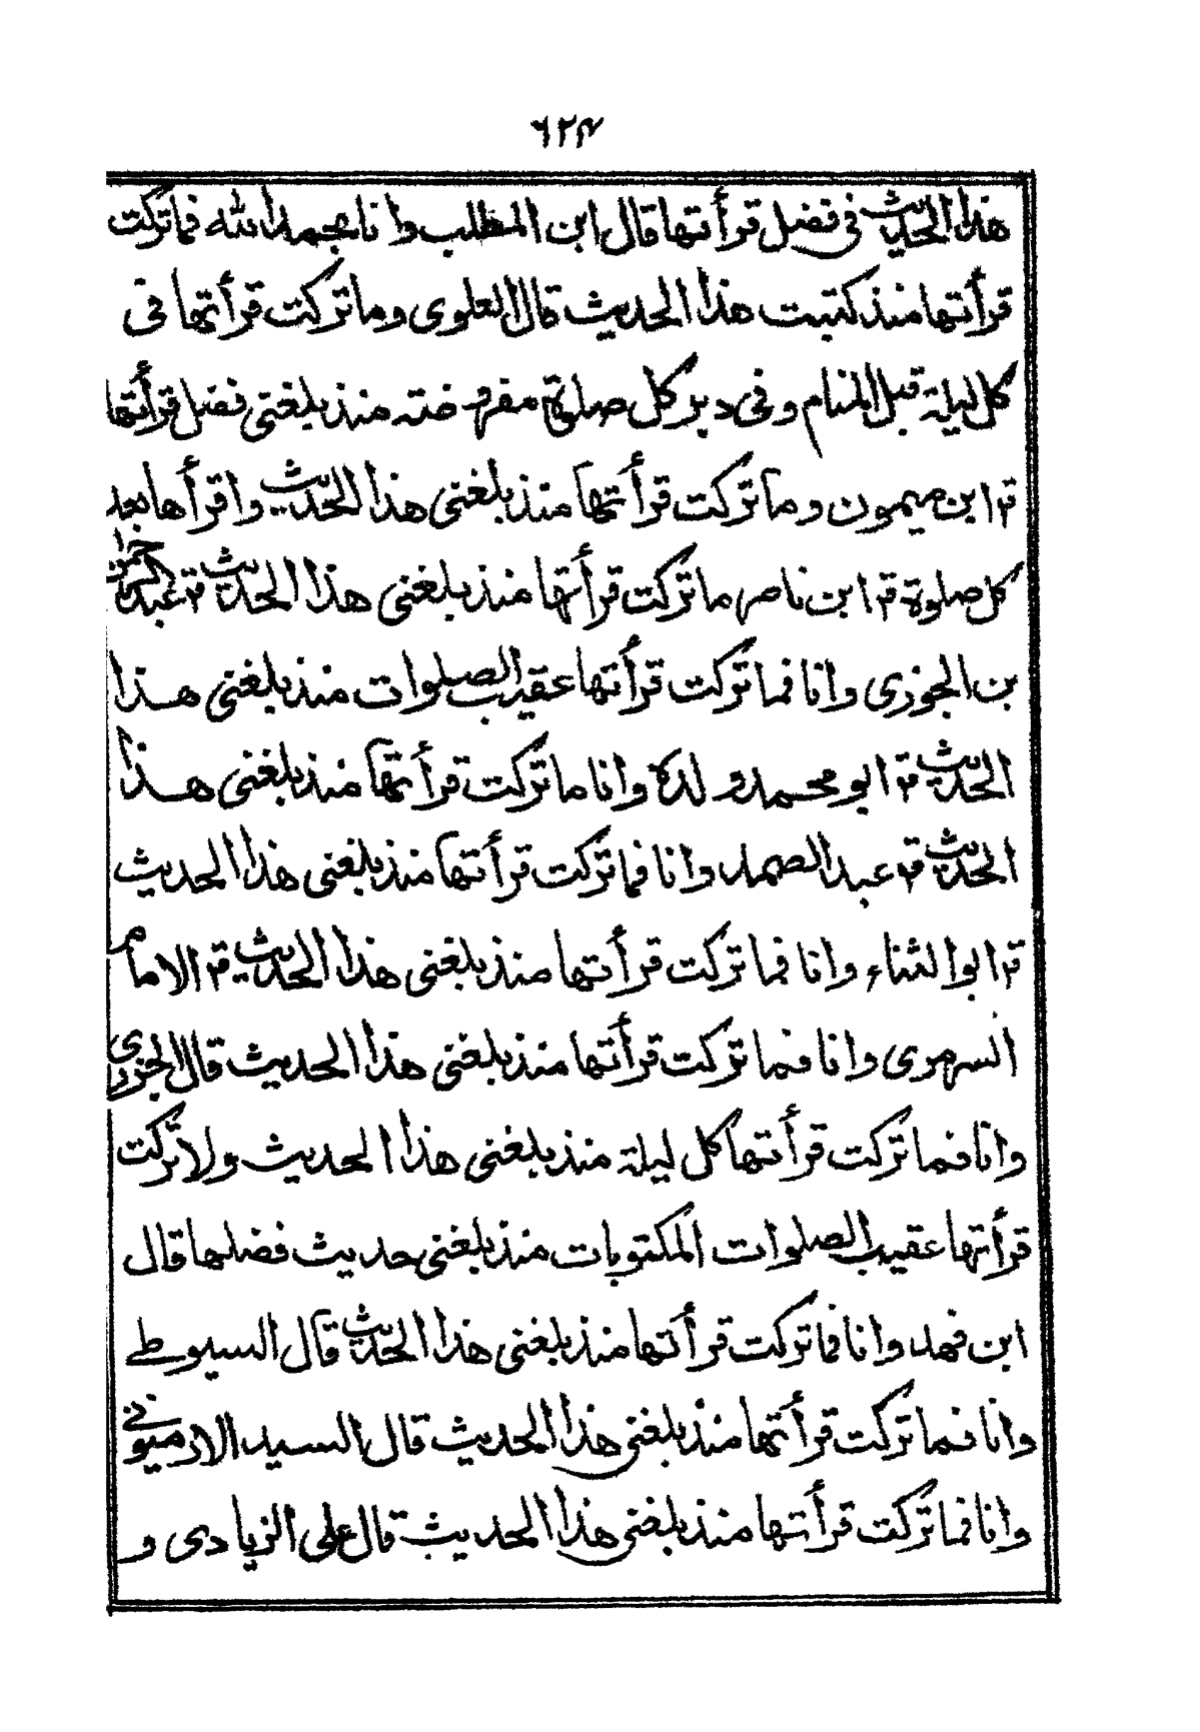 ٦٢٤
هذا الحديث فى فضل قرأتها قال ابن المطلب وانا بحمد الله فما تركت
قرأتها منذ كتبت هذا الحديث قال العلوى وما تركت قرأتها فى
كل ليلة قبل المنام وفى دبر كل صلوة مفروضته منذ بلغنى فضل قرأتها
قال ابن ميمون وما تركت قرأتها منذ بلغنى هذا الحديث واقرأها بعد
كل صلوة ابن ناصر ما تركت قرأتها منذ بلغنى هذا الحديث عبد الرحمن
بن الجوزى وانا فما تركت قرأتها عقيب الصلوات منذ بلغنى هذا
الحديث ابو محمد ولده وانا ما تركت قرأتها منذ بلغنى هذا
الحديث عبد الصمد وانا فما تركت قرأتها منذ بلغنى هذا الحديث
ابو الثناء وانا فما تركت قرأتها منذ بلغنى هذا الحديث الامام
السرمرى وانا فما تركت قرأتها منذ بلغنى هذا الحديث قال الجزرى
وانا فما تركت قرأتها كل ليلة منذ بلغنى هذا الحديث ولا تركت
قرأتها عقيب الصلوات المكتوبات منذ بلغنى حديث فضلها قال
ابن فهد وانا فما تركت قرأتها منذ بلغنى هذا الحديث قال السيوطے
وانا فما تركت قرأتها منذ بلغنى هذا الحديث قال السيد الارميونے
وانا فما تركت قرأتها منذ بلغنى هذا الحديث قال على الزيادى و